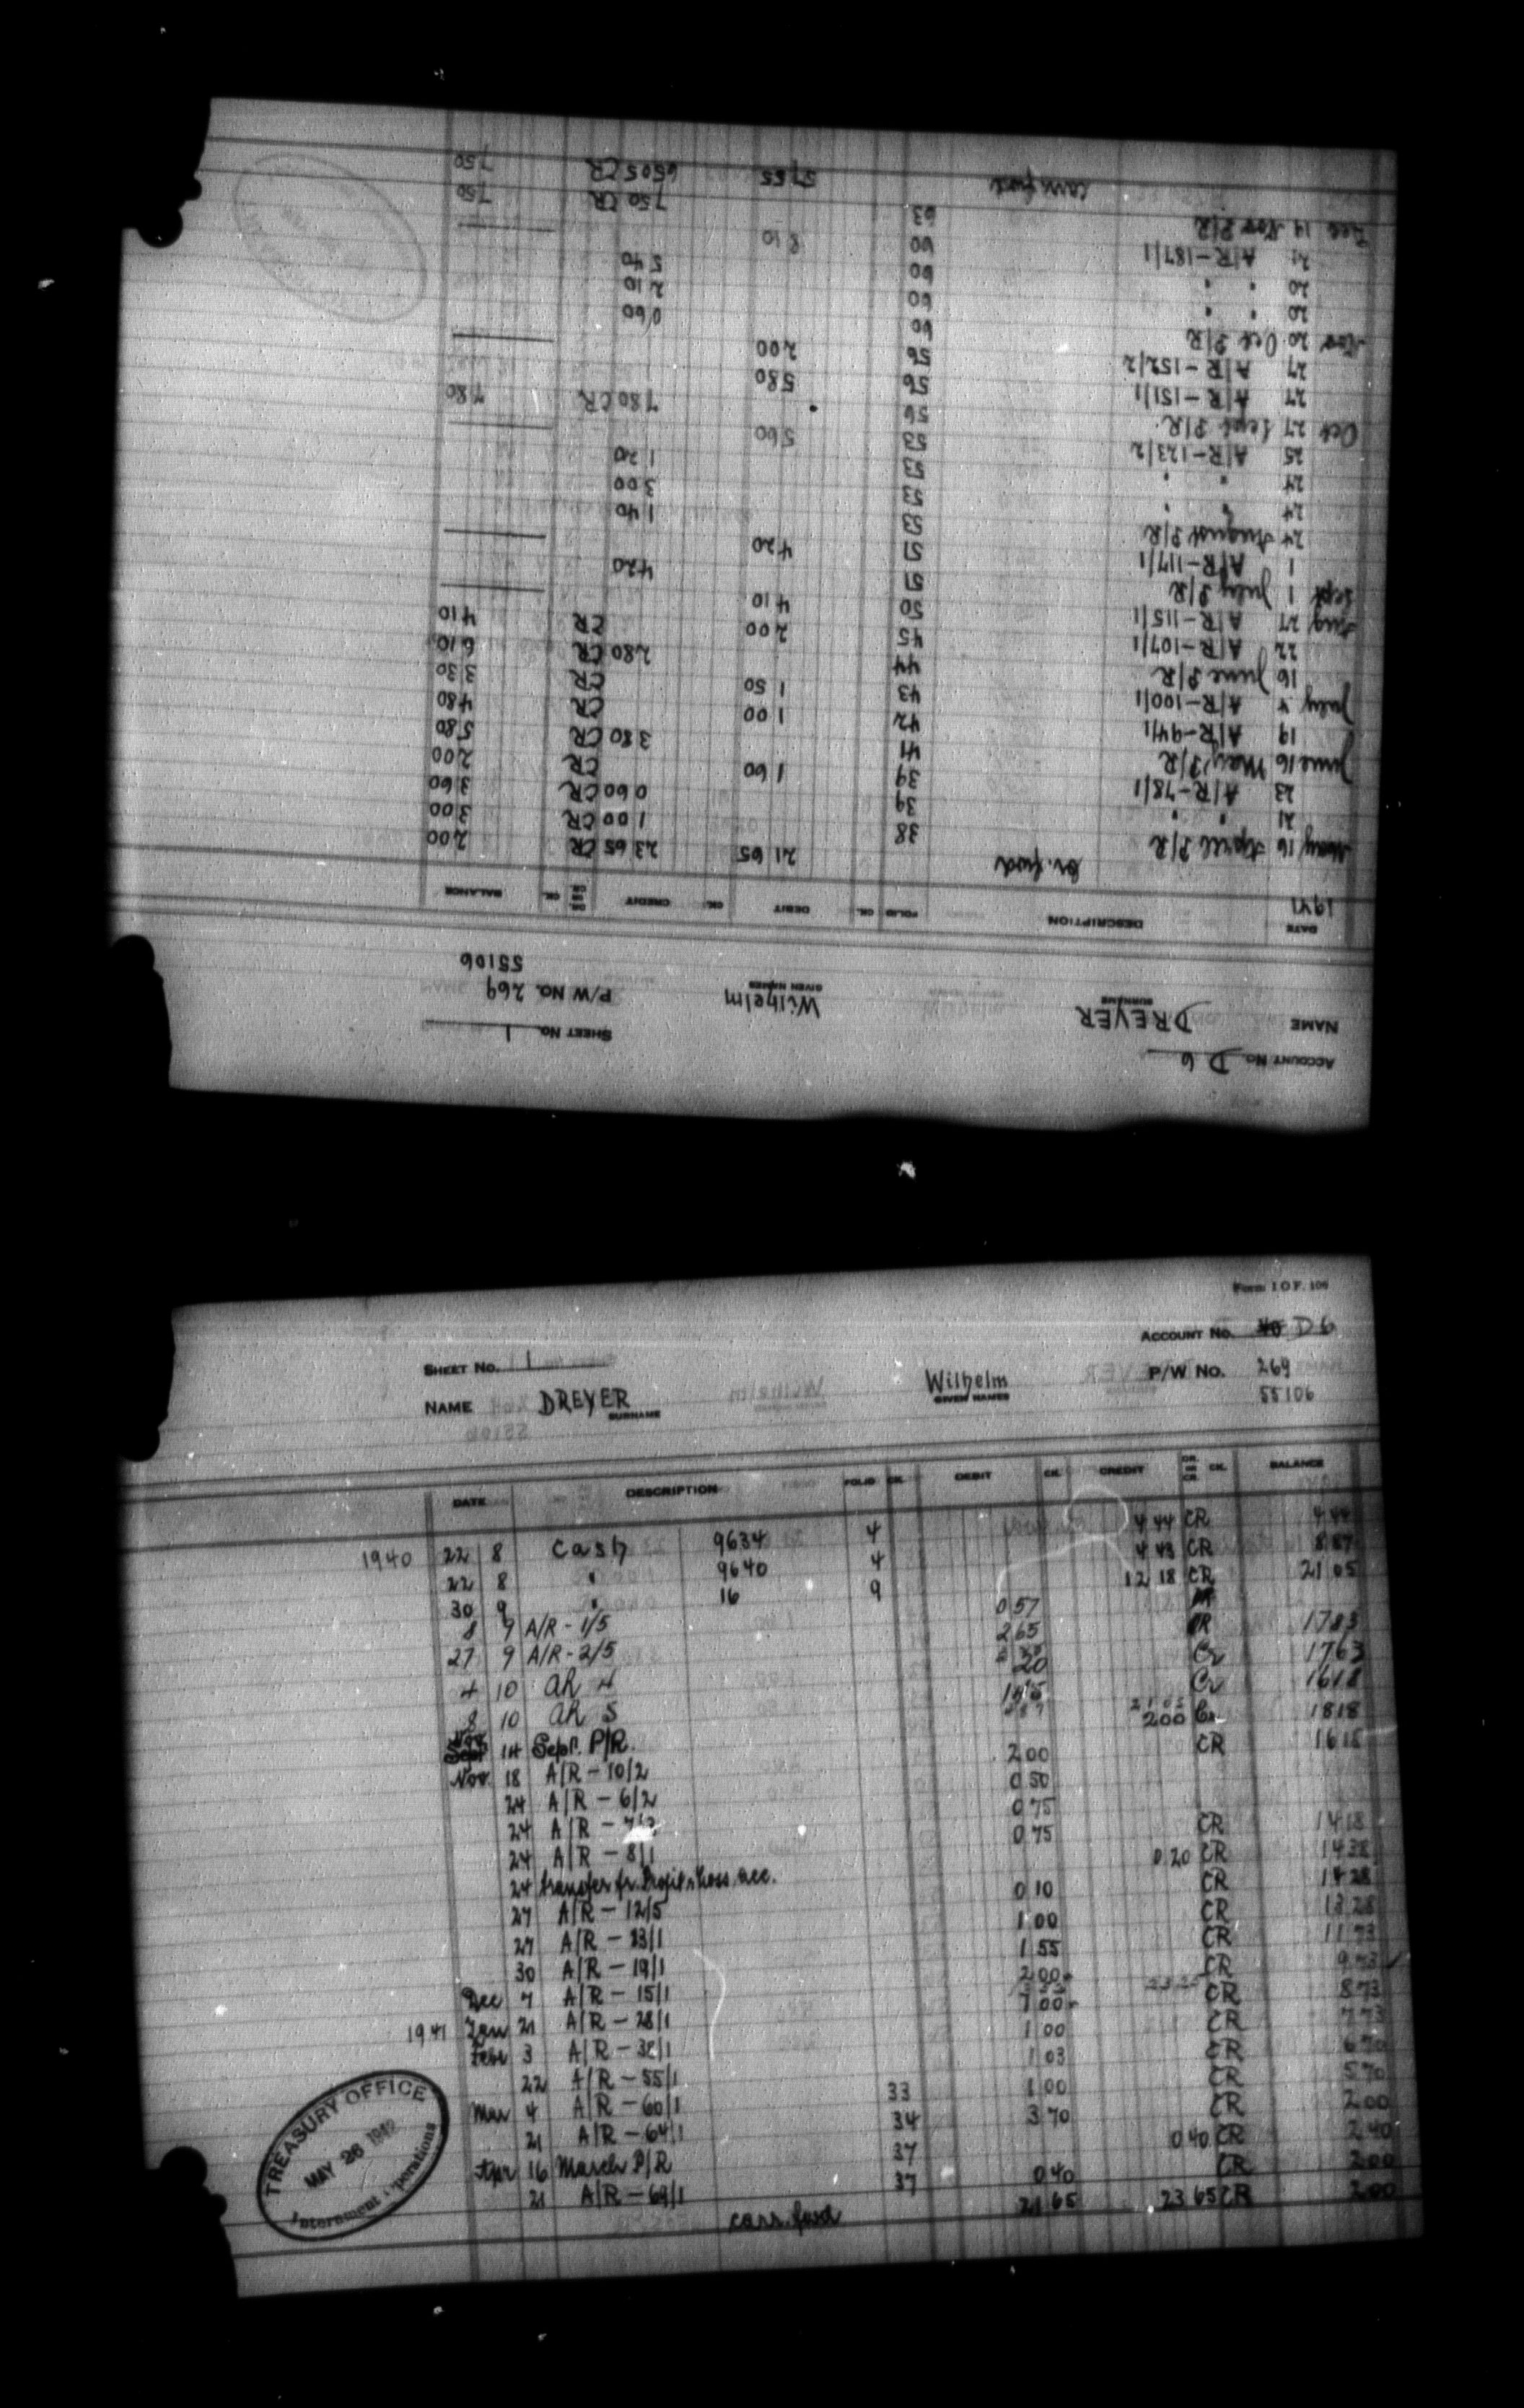 ACCOUNT No. D 6
SHEET No. 1
NAME DREYER Wilhelm P/W No. 269
SURNAME GIVEN NAMES 55106
DATE DESCRIPTION FOLIO CK. DEBIT CK. CREDIT DR. OR CR. CK. BALANCE
1941 br. fwd 21 65 23 65 CR 2 00
May 16 April P/R 38 1 00 CR 3 00
21 " " 39 0 60 CR 3 60
23 A/R-78/1 39 1 60 CR 2 00
June 16 May P/R 41 3 80 CR 5 80
19 A/R-94/1 42 1 00 CR 4 80
July 4 A/R-100/1 43 1 50 CR 3 30
16 June P/R 44 2 80 CR 6 10
22 A/R-107/1 45 2 00 CR 4 10
Aug 27 A/R-115/1 50 4 10
Sept 1 July P/R 51 4 20
1 A/R-117/1 51 4 20
24 August P/R 53 1 40
24 " " 53 3 00
24 " " 53 1 20
25 A/R-123/2 53 5 60
Oct 27 Sept P/R 56 7 80 CR 7 80
27 A/R-151/1 56 5 80
27 A/R-152/2 56 2 00
Nov 20 Oct P/R 60 0 60
20 " " 60 2 10
20 " " 60 5 40
21 A/R-187/1 60 8 10
Dec 19 Nov P/R 63 7 50 CR 7 50
carr. fwd 57 55 65 05 CR 7 50
Form I O F. 106
ACCOUNT No. D 6
SHEET No. 1
NAME DREYER Wilhelm P/W No. 269
SURNAME GIVEN NAMES 55106
DATE DESCRIPTION FOLIO CK. DEBIT CK. CREDIT DR. OR CR. CK. BALANCE
1940 22 8 Cash 9634 4 4 44 CR 4 44
22 8 " 9640 4 4 43 CR 8 87
30 9 " 16 9 12 18 CR 21 05
8 9 A/R-1/5 0 57
27 9 A/R-2/5 2 65 CR 17 83
4 10 aR 4 20 Cr 17 63
8 10 aR 5 1 45 Cr 16 18
Nov 14 Sept. P/R. 2 00 Cr 18 18
Nov. 18 A/R-10/2 2 00 CR 16 18
24 A/R-6/2 0 50
24 A/R-7/2 0 75
24 A/R-8/1 0 75 CR 14 18
24 transfer fr. Profit & Loss acc. 0 20 CR 14 38
27 A/R-12/5 0 10 CR 14 28
27 A/R-23/1 1 00 CR 13 28
30 A/R-19/1 1 55 CR 11 73
Dec 7 A/R-15/1 2 00 CR 9 73
1941 Jan 21 A/R-28/1 1 00 CR 8 73
Feb 3 A/R-38/1 1 00 CR 7 73
22 A/R-55/1 1 03 CR 6 70
Mar 4 A/R-60/1 33 1 00 CR 5 70
21 A/R-64/1 34 3 70 CR 2 00
Apr 16 March P/R 37 0 40 CR 2 40
21 A/R-69/1 37 0 40 CR 2 00
carr. fwd 21 65 23 65 CR 2 00
TREASURY OFFICE
MAY 26 1942
Internment Operations